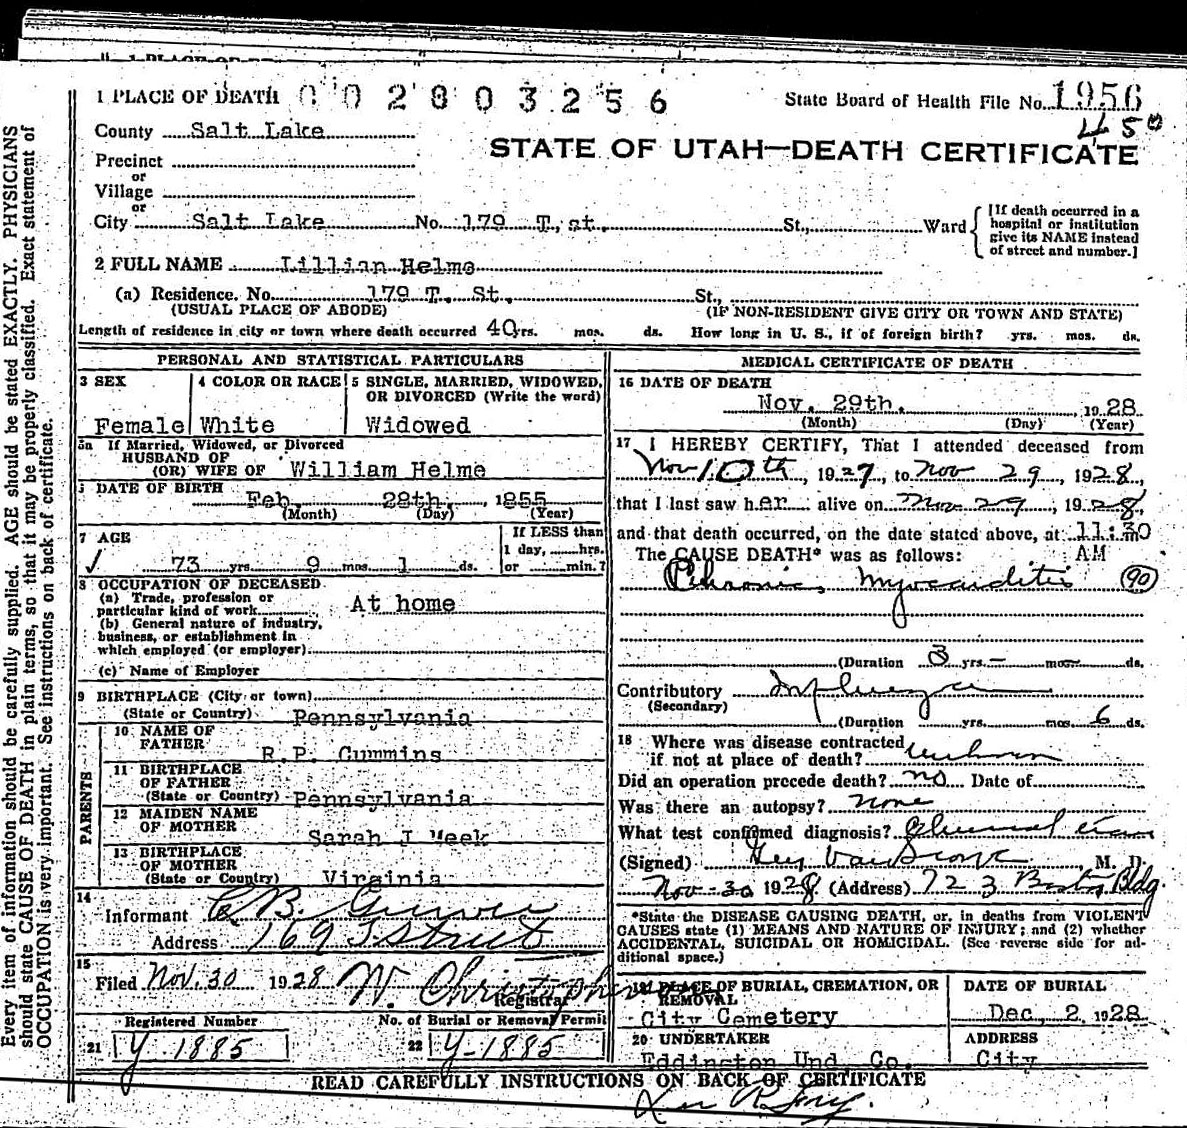 1 PLACE OF DEATH 0 0 2 8 0 3 2 5 6 State Board of Health File No. 1956
450
County Salt Lake
STATE OF UTAH—DEATH CERTIFICATE
Precinct
or
Village
or
City Salt Lake No. 179 T, st. St., Ward
[If death occurred in a
hospital or institution
give its NAME instead
of street and number.]
2 FULL NAME Lillian Helme
(a) Residence. No. 179 T. St. St.,
(USUAL PLACE OF ABODE) (IF NON-RESIDENT GIVE CITY OR TOWN AND STATE)
Length of residence in city or town where death occurred 40 yrs. mos. ds. How long in U. S., if of foreign birth? yrs. mos. ds.
PERSONAL AND STATISTICAL PARTICULARS
3 SEX 4 COLOR OR RACE 5 SINGLE, MARRIED, WIDOWED,
OR DIVORCED (Write the word)
Female White Widowed
5a If Married, Widowed, or Divorced
HUSBAND OF
(OR) WIFE OF William Helme
DATE OF BIRTH Feb. 28th. 1855
(Month) (Day) (Year)
7 AGE If LESS than
1 day, hrs.
73 yrs. 9 mos. 1 ds. or min.?
8 OCCUPATION OF DECEASED
(a) Trade, profession or
particular kind of work At home
(b) General nature of industry,
business, or establishment in
which employed (or employer)
(c) Name of Employer
9 BIRTHPLACE (City or town)
(State or Country) Pennsylvania
PARENTS
10 NAME OF
FATHER R.P. Cummins
11 BIRTHPLACE
OF FATHER
(State or Country) Pennsylvania
12 MAIDEN NAME
OF MOTHER Sarah J Meek
13 BIRTHPLACE
OF MOTHER
(State or Country) Virginia
14
Informant B.
Address 169 J Street
15
Filed Nov. 30 1928 W. Christopherson
Registrar
Registered Number No. of Burial or Removal Permit
21 Y 1885 22 Y-1885
MEDICAL CERTIFICATE OF DEATH
16 DATE OF DEATH
Nov. 29th. , 1928
(Month) (Day) (Year)
17 I HEREBY CERTIFY, That I attended deceased from
Nov 10th, 1927, to Nov 29, 1928,
that I last saw her alive on Nov 29, 1928,
and that death occurred, on the date stated above, at 11:30 m
The CAUSE DEATH* was as follows: AM
Chronic Myocarditis 90
(Duration 3 yrs. — mos. ds.
Contributory Influenza
(Secondary)
(Duration yrs. mos. 6 ds.
18 Where was disease contracted
if not at place of death? unknown
Did an operation precede death? no Date of
Was there an autopsy? none
What test confirmed diagnosis? Physical exam
(Signed) , M. D.
Nov-30 1928 (Address) 723 Boston Bldg.
*State the DISEASE CAUSING DEATH, or, in deaths from VIOLENT
CAUSES state (1) MEANS AND NATURE OF INJURY; and (2) whether
ACCIDENTAL, SUICIDAL OR HOMICIDAL. (See reverse side for ad-
ditional space.)
19 PLACE OF BURIAL, CREMATION, OR
REMOVAL
DATE OF BURIAL
City Cemetery Dec, 2, 1928
20 UNDERTAKER ADDRESS
Eddington Und. Co. City
READ CAREFULLY INSTRUCTIONS ON BACK OF CERTIFICATE
Every item of information should be carefully supplied. AGE should be stated EXACTLY. PHYSICIANS
should state CAUSE OF DEATH in plain terms, so that it may be properly classified. Exact statement of
OCCUPATION is very important. See instructions on back of certificate.